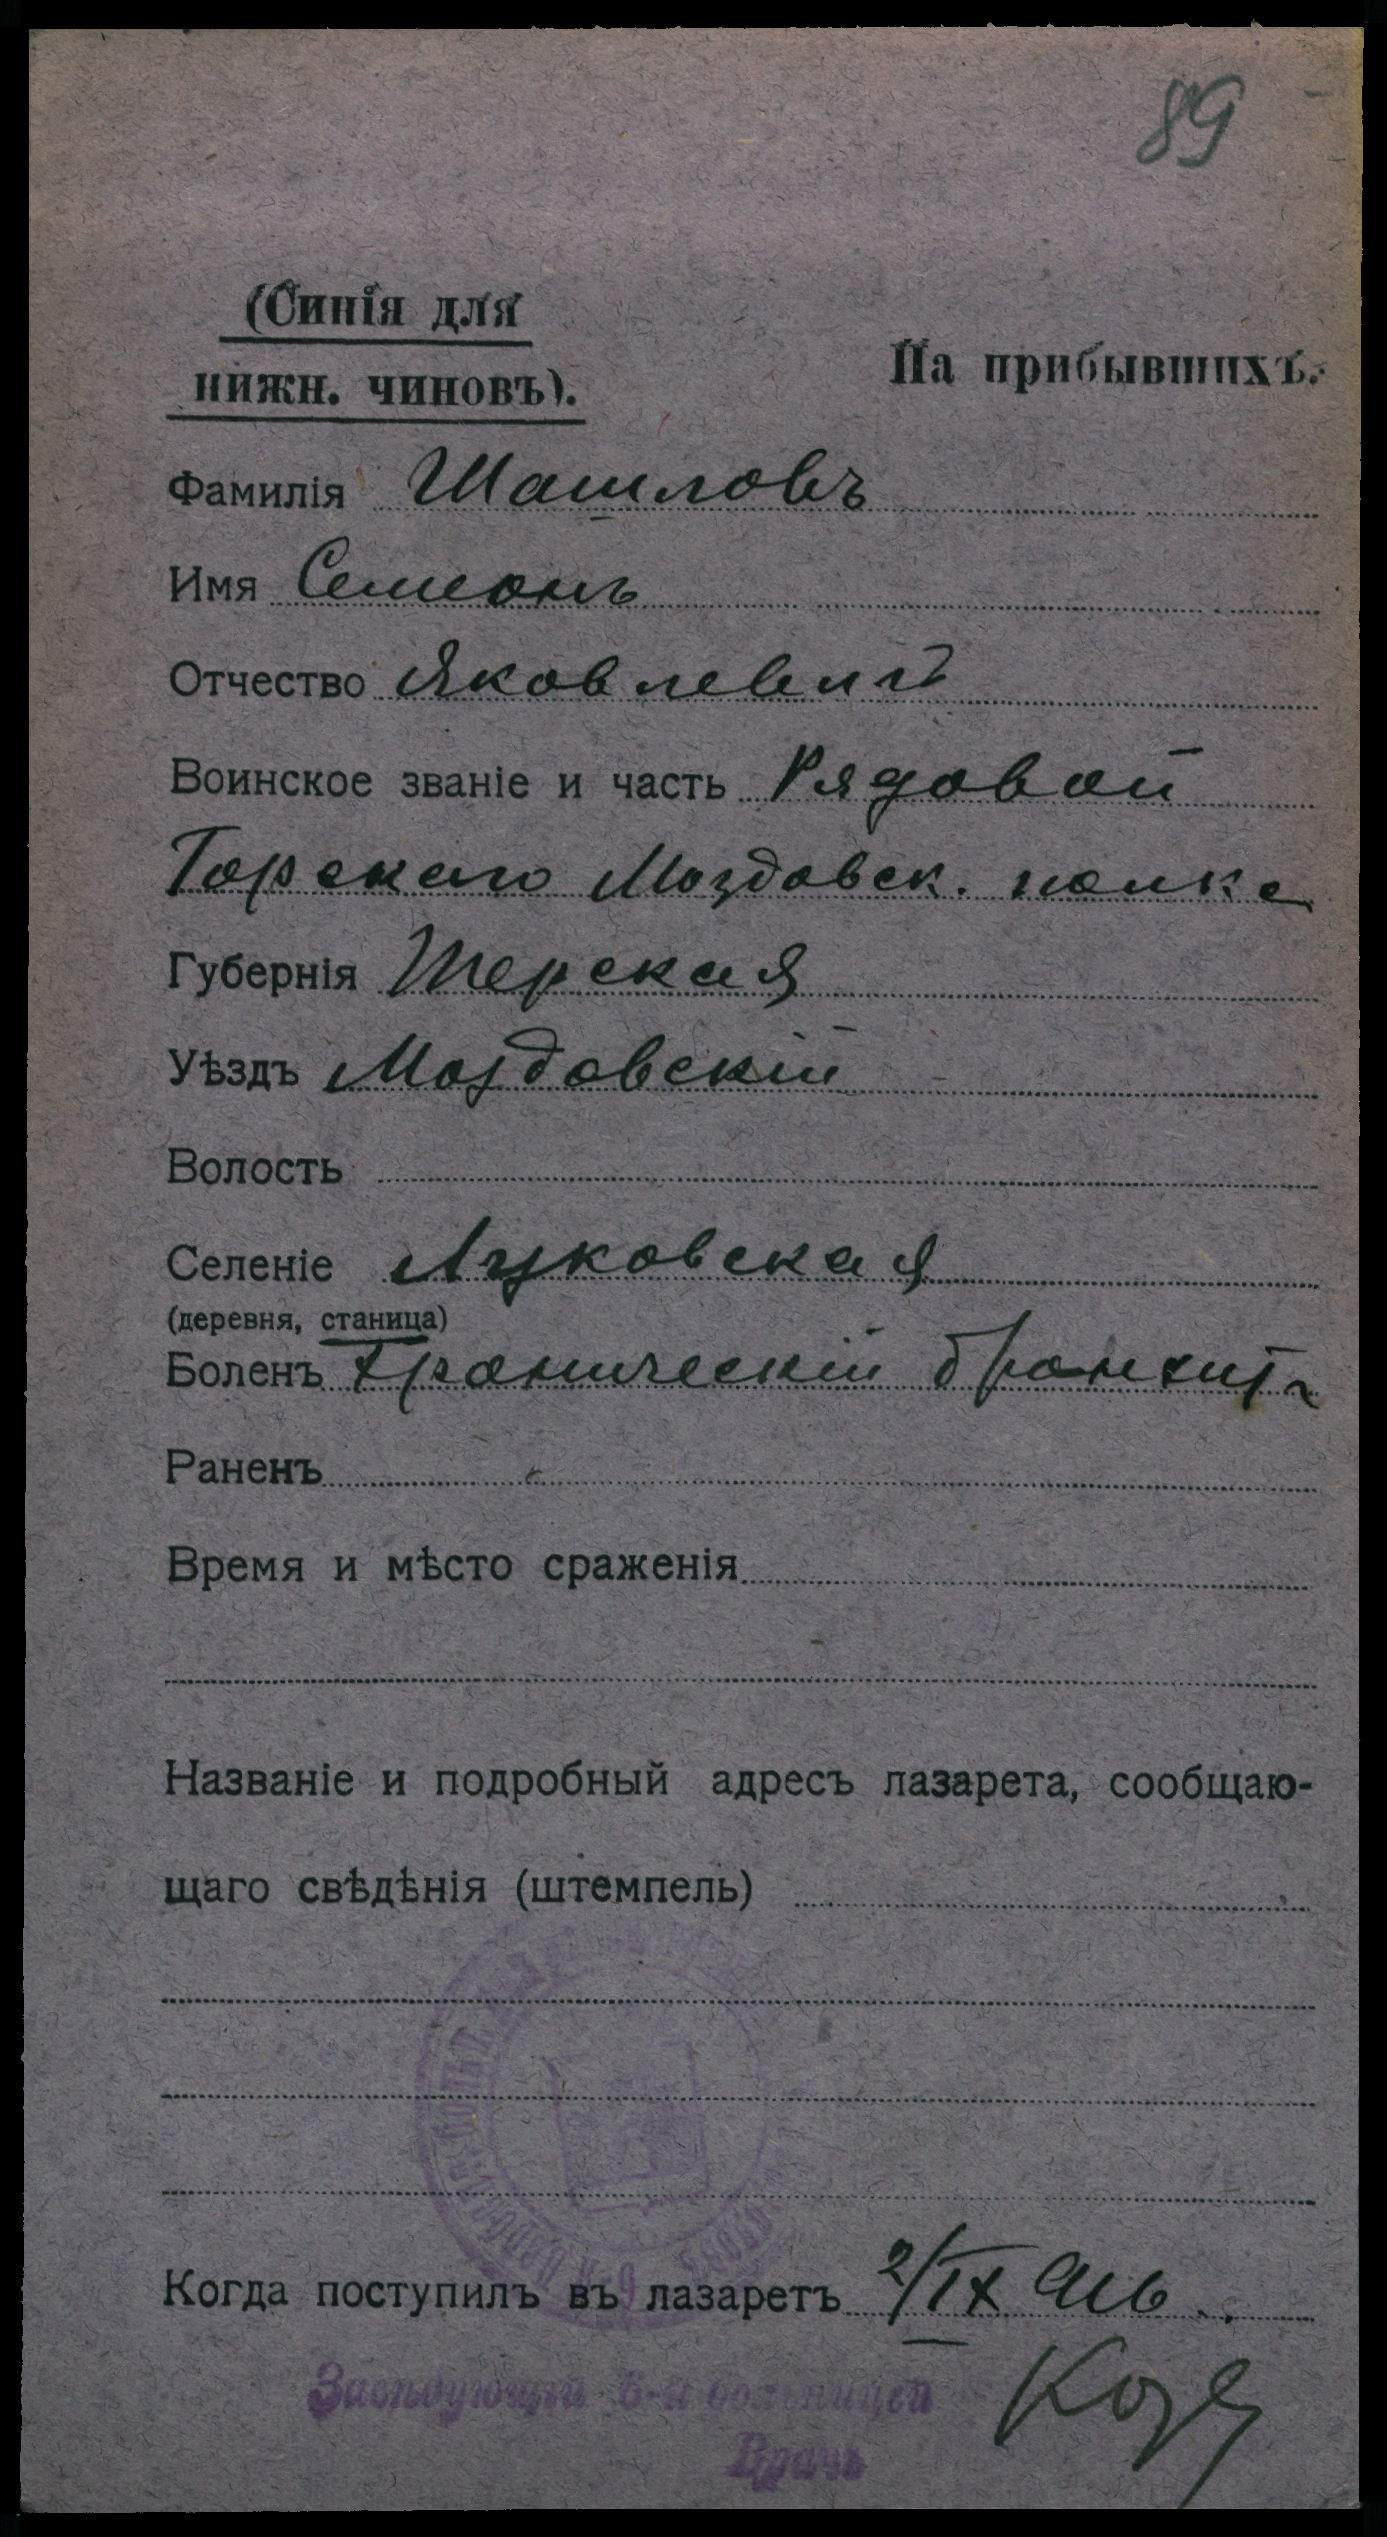 89
(Синія для
нижн. чиновъ).
На прибывшихъ.
Фамилія Шашловъ
Имя Семенъ
Отчество Яковлевич
Воинское званіе и часть Рядовой
Горскаго Моздовск. полка
Губернія Терская
Уѣздъ Моздовскій
Волость
Селеніе Луковская
(деревня, станица)
Боленъ Хроническій бронхитъ
Раненъ
Время и мѣсто сраженія
Названіе и подробный адресъ лазарета, сообщаю-
щаго свѣдѣнія (штемпель)
Когда поступилъ въ лазаретъ 2/IX 916
Завѣдующій 6-й больницей
Врачъ